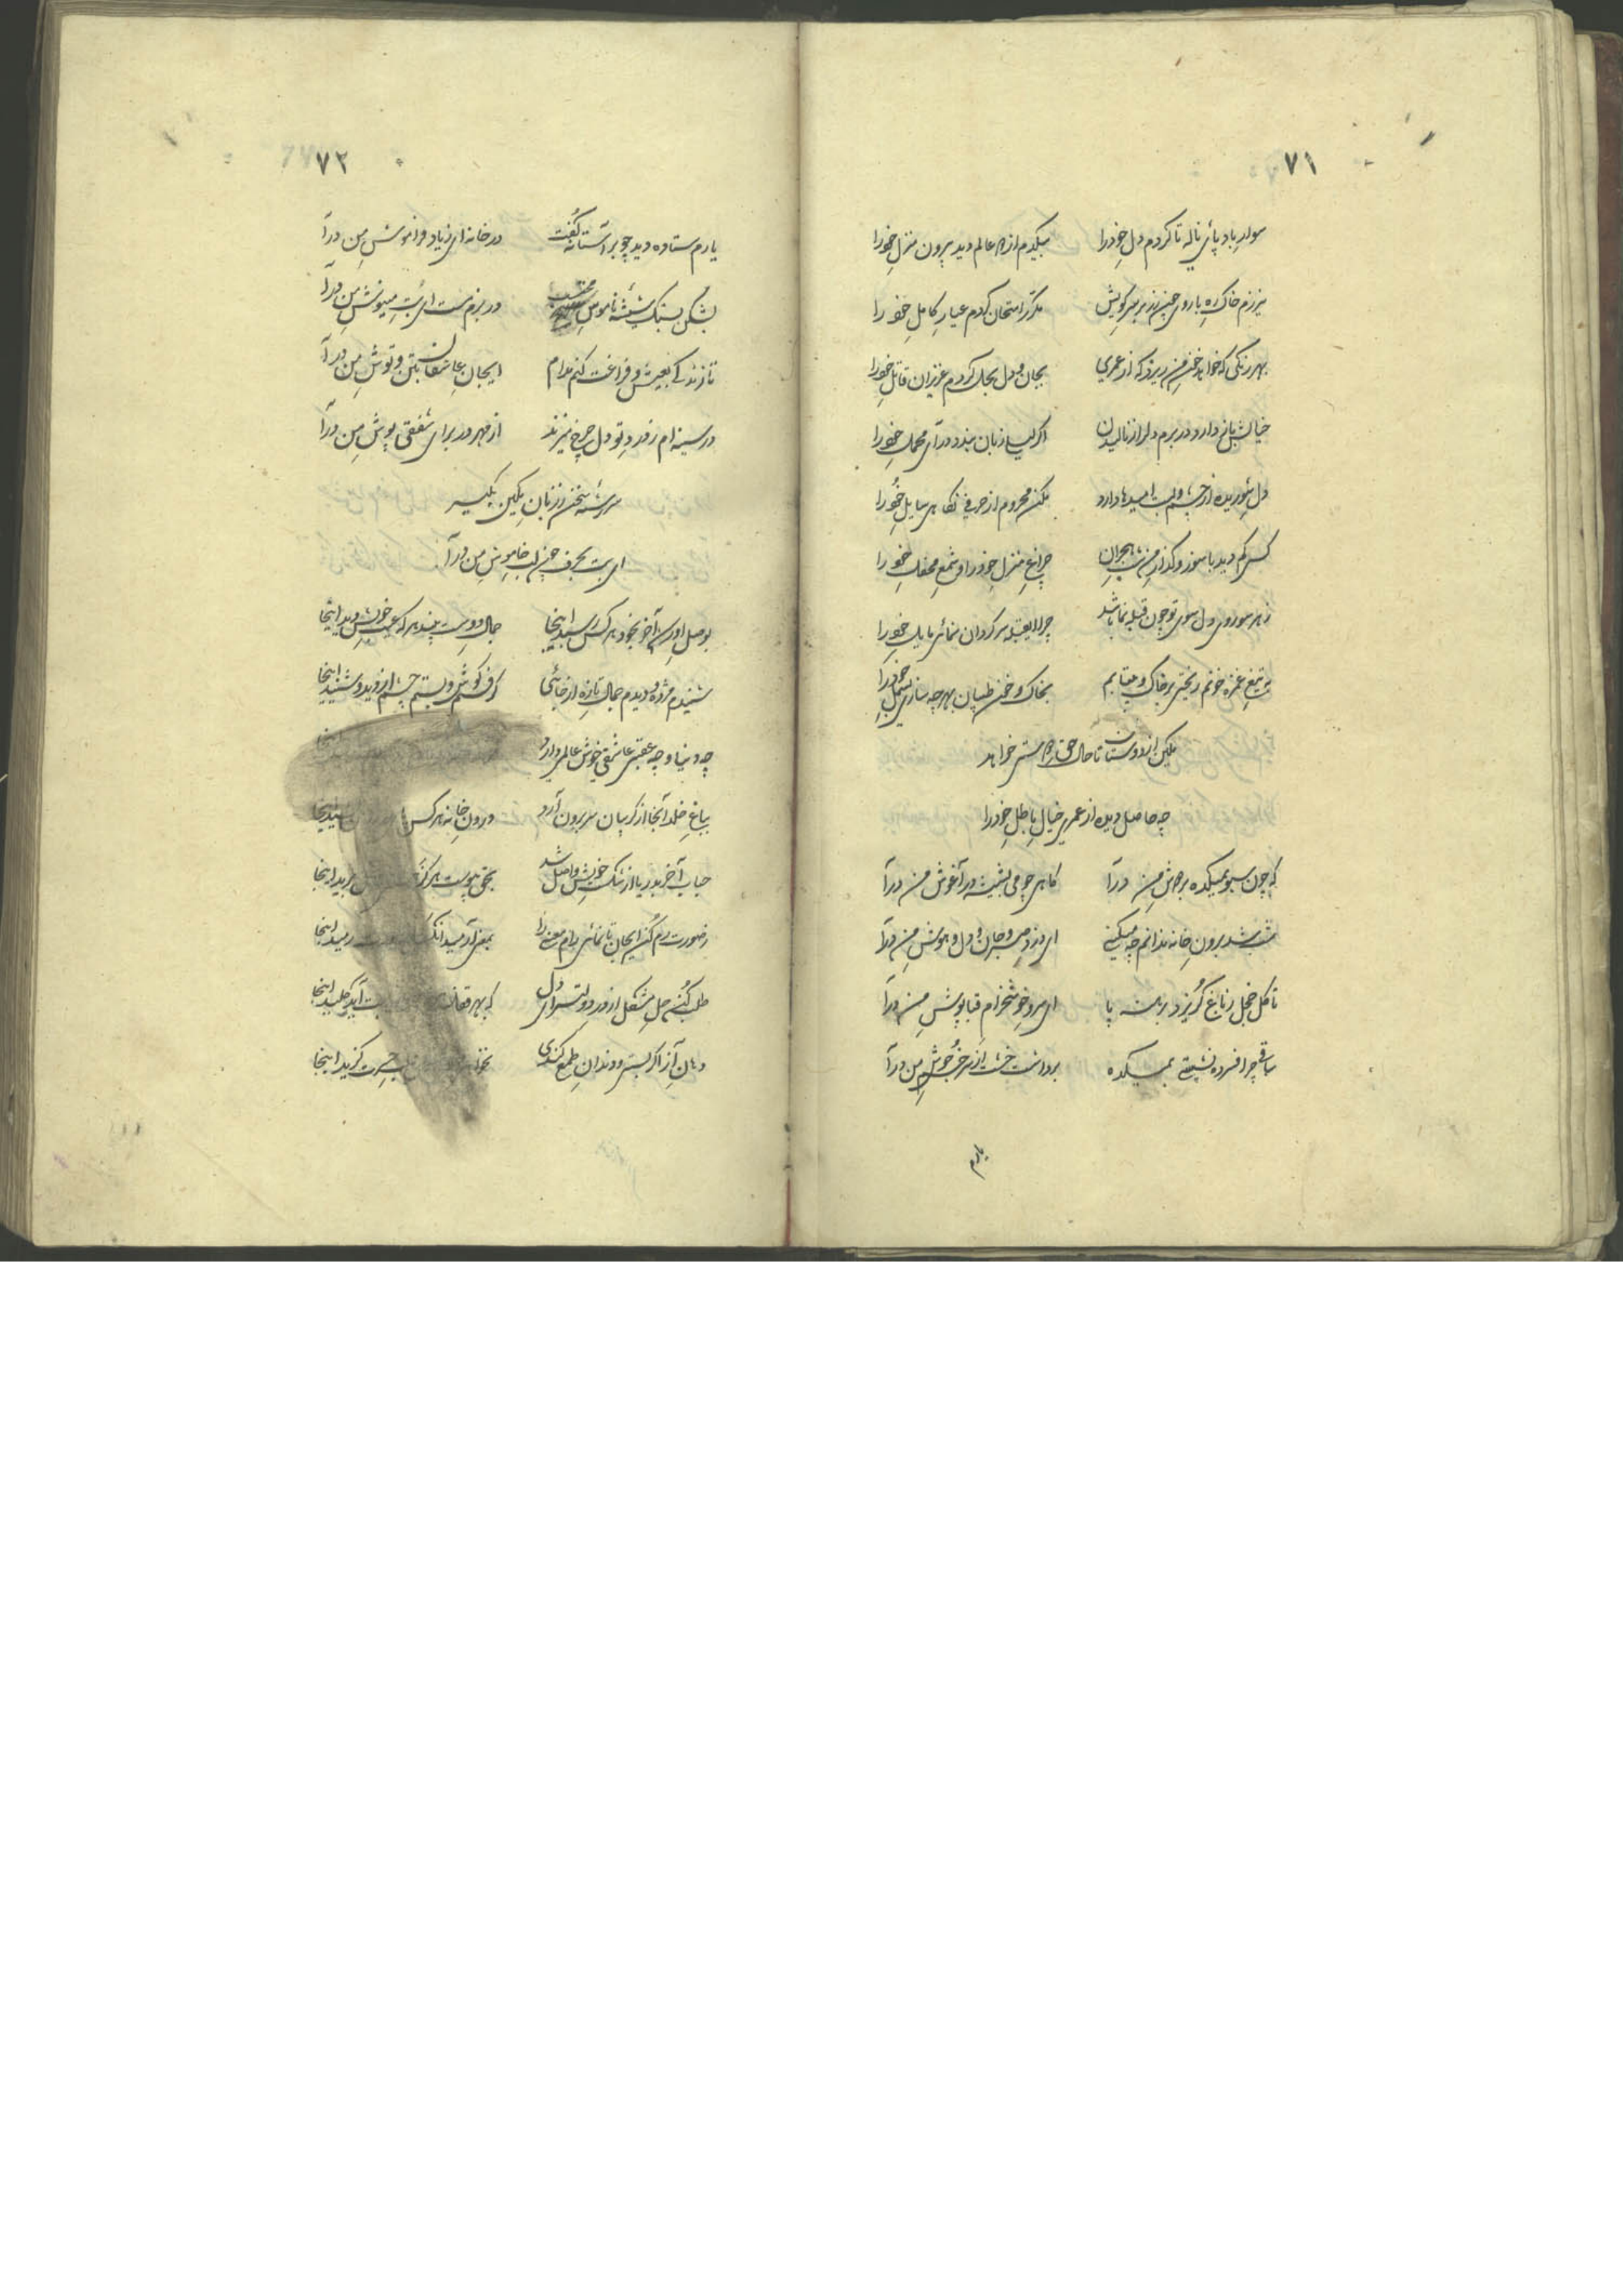 ۷۱
سوار باد پائی ناله تا کردم دل خودرا بیکدم از دو عالم دید بیرون منزل خودرا
نیرزم خاک ره با روی چون زر بر سر کویش مکرر امتحان کردم عیار کامل خود را
بهر رنگی که خواهد خون من ریزد که از عمری بجان و دل بحل کردم عزیزان قاتل خودرا
خیالش پاس دارد در برم دلرا ز نالیدن اگر لیلے زبان بندد درآی محمل خودرا
دل شوریده از چشم و لبت امیدها دارد مکن محروم از حرفی نگاهی سایل خودرا
کس کم دید با سوز و گداز من شب هجران چراغ منزل خود را و شمع محفل خود را
ز هر سو روی دل سوی تو چون قبله نما باشد چرا ای قبله سرگردان نمائی مایل خودرا
به تیغ غمزه خونم ریختی بر خاک و میتابم بخاک و خون طپان بهر چه سازی بسمل خودرا
یکین از دوستان تا حال حق را مشتری خواهد
چه حاصل دیده از عمر خیال باطل خودرا
که چون سبو بمیکده بر دوش من درآ گاهی چو می بشیشه در آغوش من درآ
شب شد برون خانه ندانم چه میکنی ای دزد صبر و جان و دل و هوش من درآ
تا گل خجل ز باغ گریزد برهنه پا ای سرو خوشخرام قباپوش من درآ
ساقی چرا فسرده نشینی بمیکده برداشت خشت از سر خم جوش من درآ
یارم
۷۲
یارم ستاده دید چو بر آستانه گفت در خانه ای زیاد فراموش من درآ
بشکن بسنگ شیشه ناموس محتسب در بزم مست ای بت مینوش من درآ
تا زندگی بعیش و فراغت کنم مدام ایجان عاشقان بتن و توش من درآ
در سینه ام ز درد تو دل چرخ میزند از مهر در برای شفقی پوش من درآ
سررشته سخن ز زبان یکین بگیر
ای بت بحرف چون لب خاموش من درآ
بوصل او رسد آخر بخود هر کس رسید اینجا جمال دوست بیند هر که عیب خویش دید اینجا
شنیدم مژده و دیدم جمال تازه از جائی که گوش و بستم چشم از دید و شنید اینجا
چه دنیا و چه عقبی عاشقی خوش عالمی دارد
بباغ خلد آنجا از گریبان سر برون آرد درون خانه هر کس
حباب آخر بدریا از شکست خویش واصل شد بحق پیوست هر کز برید اینجا
ز صورت رم کن ایجان تا نمائی رام معنی را بمعنی آرمید آنکس رمید اینجا
طلب کن حل مشکل از در دولتسرای دل که بهر قفل بدست آید کلید اینجا
دهان آز اگر بستی و دندان طمع کندی حسرت گزید اینجا